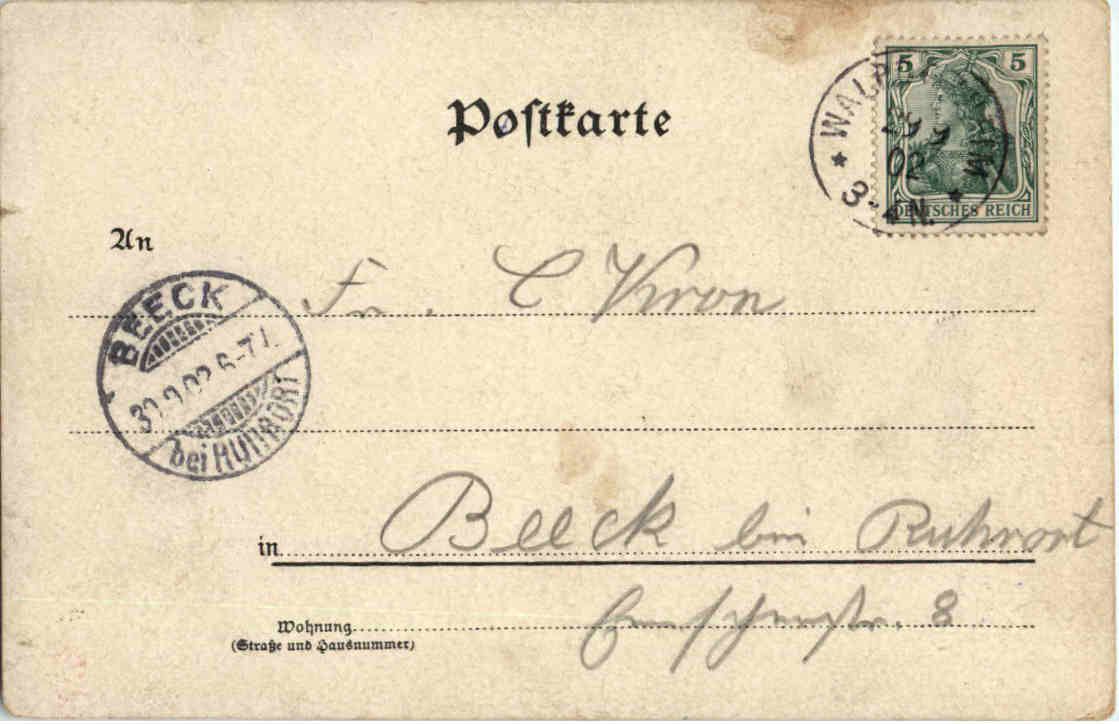 Postkarte
5 5
DEUTSCHES REICH
02
3-4 N.
An
Fr. C Kron
BEECK
30.9.02 6-7
bei RUHRORT
in Beeck bei Ruhrort
Wohnung Emscherstr. 8
(Straße und Hausnummer)